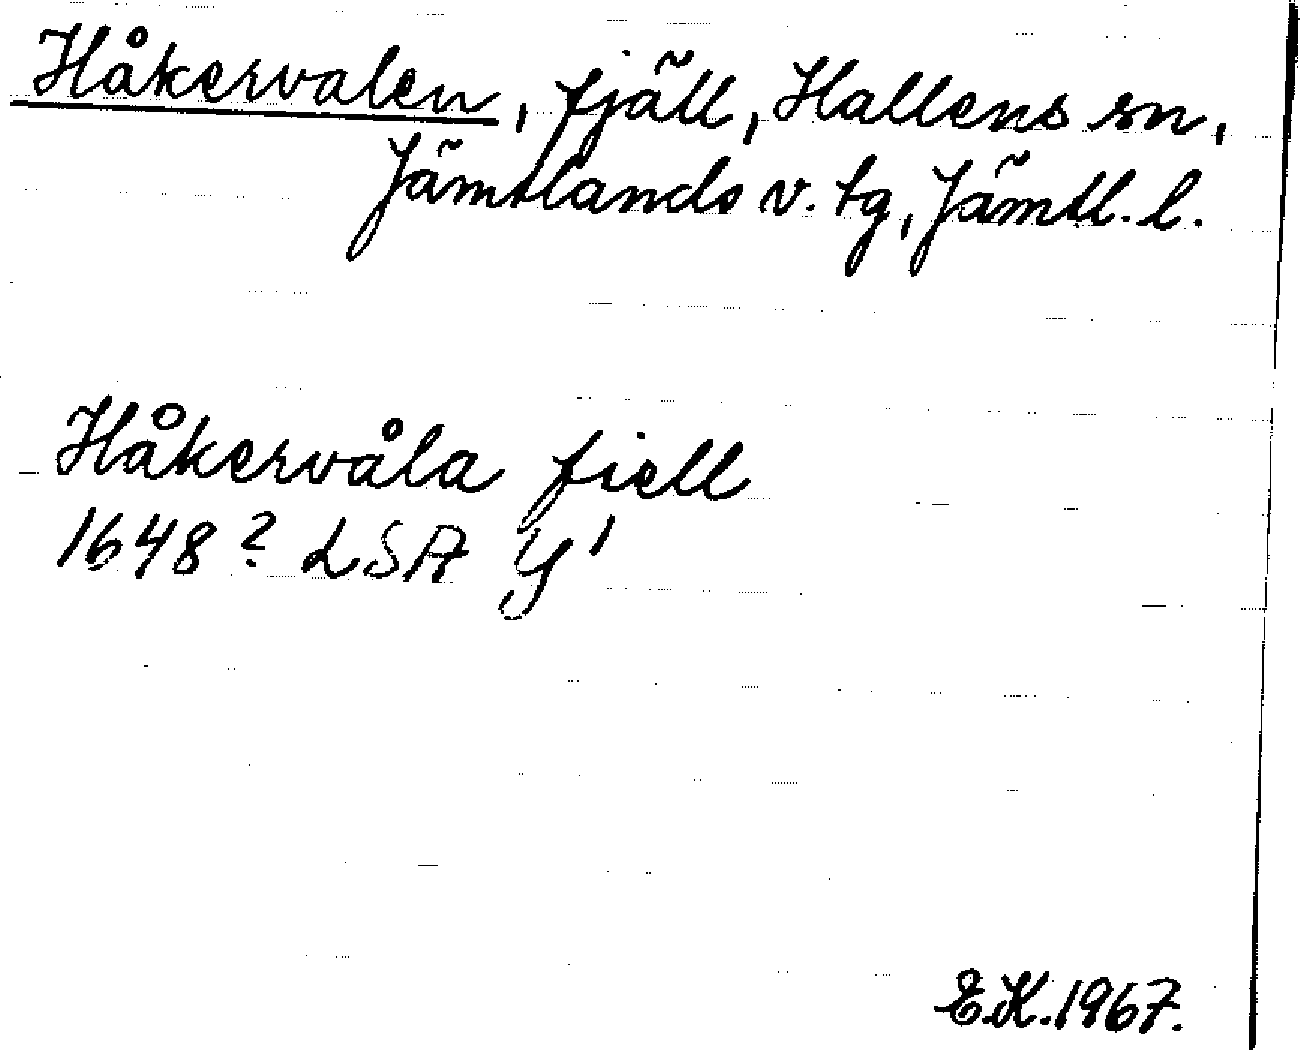 Håkervalen, fjäll, Hallens sn,
Jämtlands v. tg, Jämtl. l.
Håkervåla fiell
1648? LSA Y1
E.K. 1967.